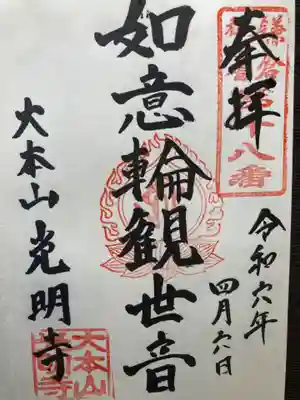 奉拝
令和六年
四月六日
如意輪観世音
大本山光明寺
大本山
光明寺